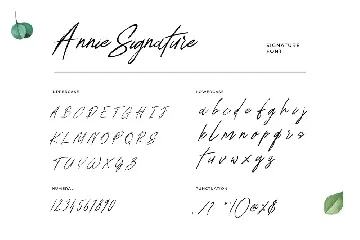 Annie Signature
SIGNATURE
FONT
UPPERCASE
A B C D E F G H I J
K L M N O P Q R S
T U V W X Y Z
LOWERCASE
a b c d e f g h i j
k l m n o p q r s
t u v w x y z
NUMERAL
1234567890
PUNCTUATION